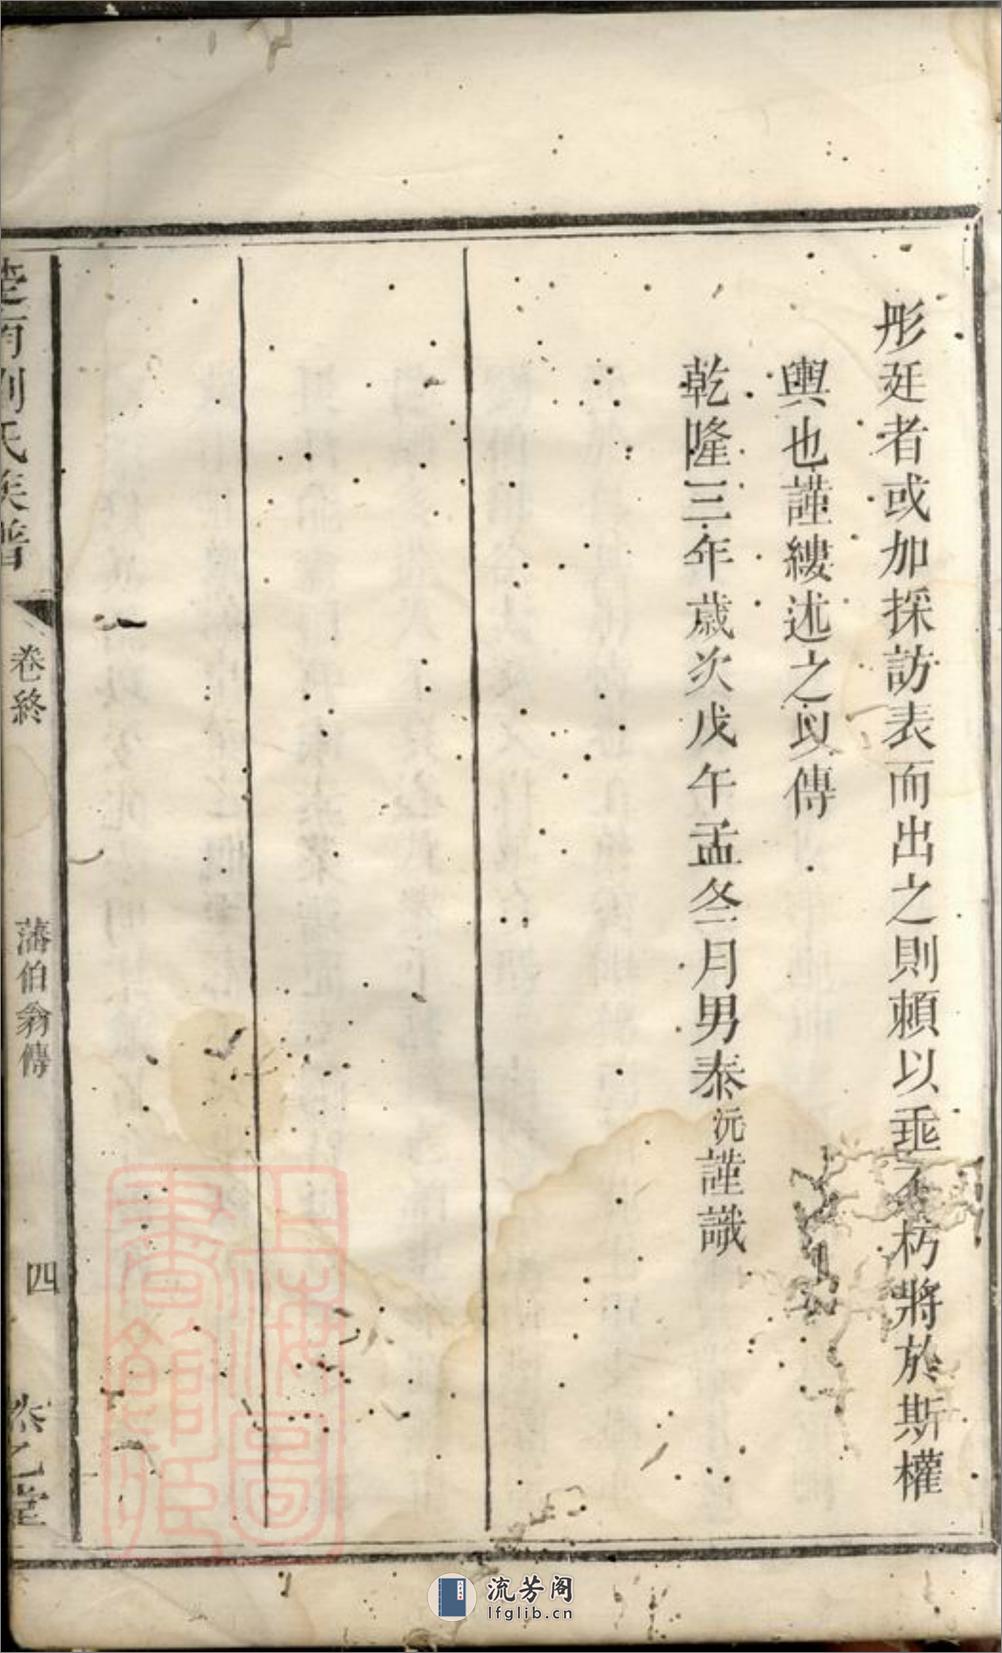 彤廷者或加採訪表而出之則賴以垂不朽將於斯權
輿也謹縷述之以傳
乾隆三年歲次戊午孟冬月男泰沅謹識
楚南劉氏族譜
卷終
藩伯翁傳
四
藜乙堂
上海圖書館藏
流芳阁
lfglib.cn